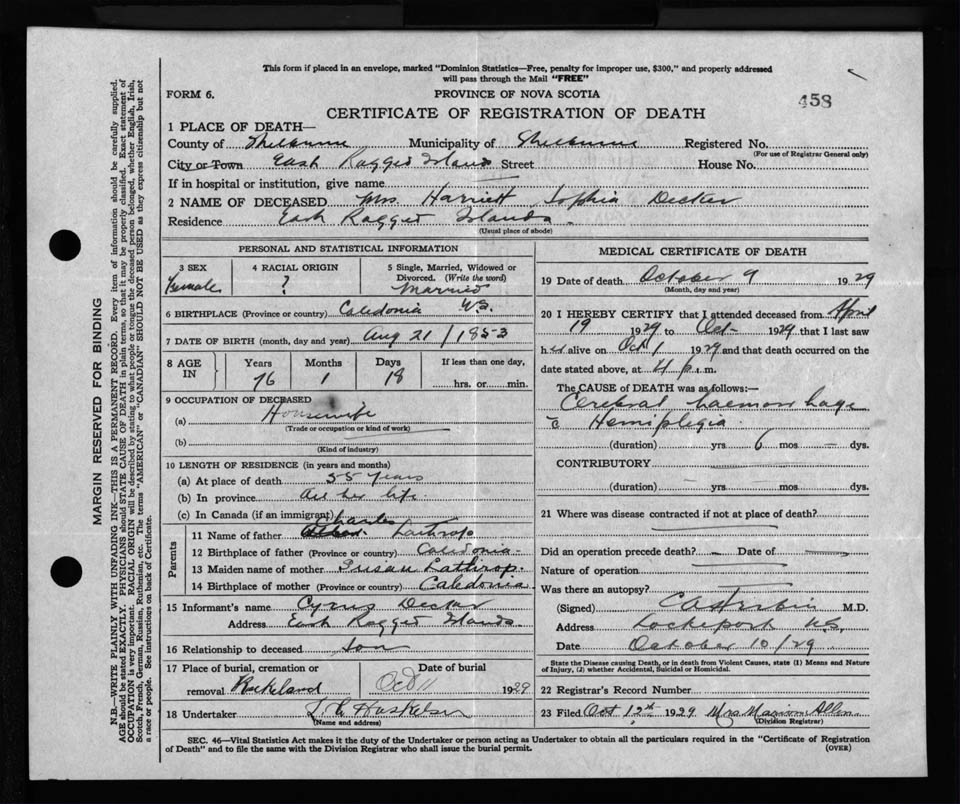 This form if placed in an envelope, marked "Dominion Statistics—Free, penalty for improper use, $300," and properly addressed
will pass through the Mail "FREE"
FORM 6.
PROVINCE OF NOVA SCOTIA
458
CERTIFICATE OF REGISTRATION OF DEATH
1 PLACE OF DEATH—
County of Shelburne Municipality of Shelburne Registered No.
(For use of Registrar General only)
City or Town East Ragged Islands Street House No.
If in hospital or institution, give name
2 NAME OF DECEASED Mrs. Harriett Sophia Decker
Residence East Ragged Islands
(Usual place of abode)
PERSONAL AND STATISTICAL INFORMATION
3 SEX
Female
4 RACIAL ORIGIN
?
5 Single, Married, Widowed or
Divorced. (Write the word)
Married
6 BIRTHPLACE (Province or country) Caledonia N.S.
7 DATE OF BIRTH (month, day and year) Aug 21 / 1853
8 AGE
IN
Years
76
Months
1
Days
18
If less than one day,
hrs. or min.
9 OCCUPATION OF DECEASED
(a) Housewife
(Trade or occupation or kind of work)
(b)
(Kind of industry)
10 LENGTH OF RESIDENCE (in years and months)
(a) At place of death 55 years
(b) In province all her life.
(c) In Canada (if an immigrant)
Parents
11 Name of father Charles Lathrop
12 Birthplace of father (Province or country) Caledonia
13 Maiden name of mother Susan Lathrop.
14 Birthplace of mother (Province or country) Caledonia
15 Informant's name Cyrus Decker
Address East Ragged Islands.
16 Relationship to deceased son
17 Place of burial, cremation or
removal Rockland
Date of burial
Oct 11 1929
18 Undertaker
(Name and address)
MEDICAL CERTIFICATE OF DEATH
19 Date of death October 9 1929
(Month, day and year)
20 I HEREBY CERTIFY that I attended deceased from April
19 1929 to Oct 1929 that I last saw
her alive on Oct 1 1929 and that death occurred on the
date stated above, at 4 p.m.
The CAUSE of DEATH was as follows:—
Cerebral haemorrhage
c̄ Hemiplegia.
(duration) yrs 6 mos — dys.
CONTRIBUTORY
(duration) — yrs. mos. dys.
21 Where was disease contracted if not at place of death?
Did an operation precede death? — Date of
Nature of operation
Was there an autopsy?
(Signed) M.D.
Address Lockeport N.S.
Date October 10/29
State the Disease causing Death, or in death from Violent Causes, state (1) Means and Nature
of Injury, (2) whether Accidental, Suicidal or Homicidal.
22 Registrar's Record Number
23 Filed Oct 12th 1929 Mrs Marion Allen
(Division Registrar)
SEC. 46—Vital Statistics Act makes it the duty of the Undertaker or person acting as Undertaker to obtain all the particulars required in the "Certificate of Registration
of Death" and to file the same with the Division Registrar who shall issue the burial permit.
(OVER)
MARGIN RESERVED FOR BINDING
N.B.—WRITE PLAINLY WITH UNFADING INK—THIS IS A PERMANENT RECORD. Every item of information should be carefully supplied.
AGE should be stated EXACTLY. PHYSICIANS should STATE CAUSE OF DEATH in plain terms, so that it may be properly classified. Exact statement of
OCCUPATION is very important. RACIAL ORIGIN will be described by stating to what people or tongue the deceased person belonged, whether English, Irish,
Scotch, French, German, Russian, Ruthenian, etc. The terms "AMERICAN" or "CANADIAN" SHOULD NOT BE USED as they express citizenship but not
a race or people. See instructions on back of Certificate.